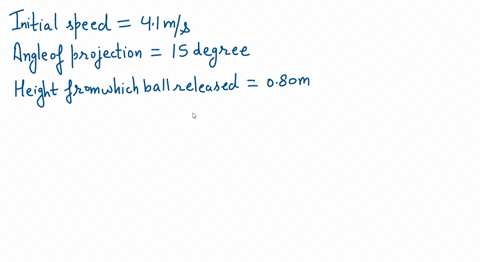 Initial speed = 4.1 m/s
Angle of projection = 15 degree
Height from which ball released = 0.80m